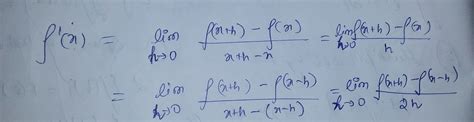 f'(x) = lim h→0 f(x+h) - f(x) / x+h-x = lim h→0 f(x+h) - f(x) / h
= lim h→0 f(x+h) - f(x-h) / x+h-(x-h) = lim h→0 f(x+h) - f(x-h) / 2h